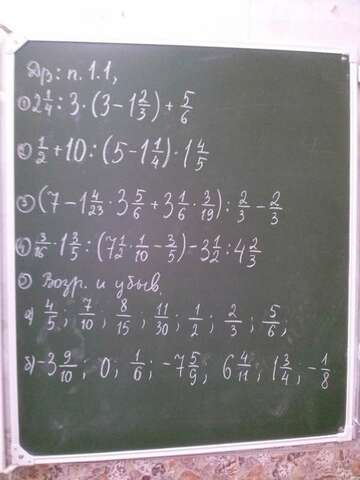 Дз: п. 1.1,
① 2 1/4 : 3 · (3 - 1 2/3) + 5/6
② 1/2 + 10 : (5 - 1 1/4) · 1 4/5
③ (7 - 1 4/23 · 3 5/6 + 3 1/6 · 3/19) : 2/3 - 2/3
④ 3/16 · 1 3/5 : (7 1/2 · 1/10 - 3/5) - 3 1/2 : 4 2/3
⑤ Возр. и убыв.
а) 4/5 ; 7/10 ; 8/15 ; 11/30 ; 1/2 ; 2/3 ; 5/6 ;
б) -3 9/10 ; 0 ; 1/6 ; -7 5/9 ; 6 4/11 ; 1 3/4 ; -1/8